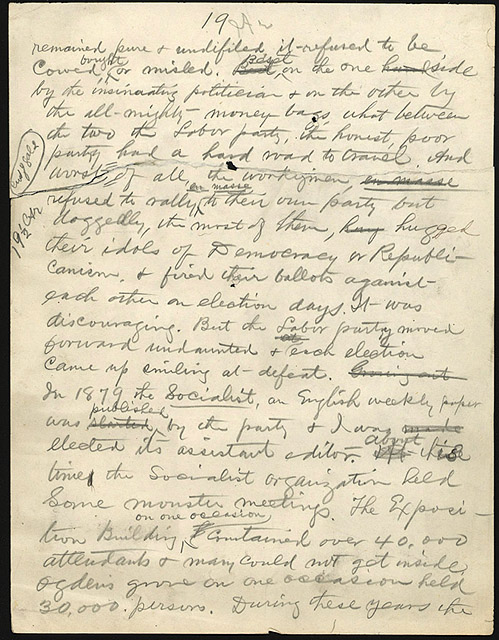 19
remained pure & undifiled, it refused to be
cowed, bought or misled. Beset on the one side
by the insinuating politician & on the other by
the all-mighty money bags, what between
the two the Labor party, the honest, poor
party, had a hard road to travel. And
worst of all, the workingmen en masse
refused to rally en masse to their own party but
doggedly, the most of them, hung hugged
their idols of Democracy or Republi-
canism, & fired their ballots against
each other on election days. It was
discouraging. But the Labor party moved
forward undaunted & at each election
came up smiling at defeat.
In 1879 the Socialist, an English weekly paper
was started published by the party & I was made
elected its assistant editor. About this
time the Socialist organization held
some monster meetings. The Exposi-
tion Building on one occasion contained over 40,000
attendants & many could not get inside
Ogden's grove on one occasion held
30,000 persons. During these years the
19 1/2